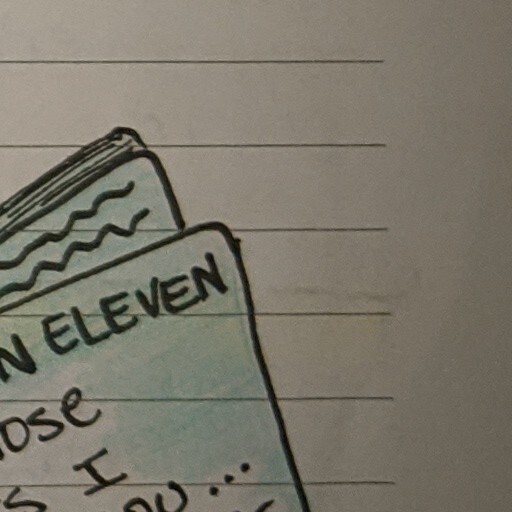 N ELEVEN
ose
s I
ou...